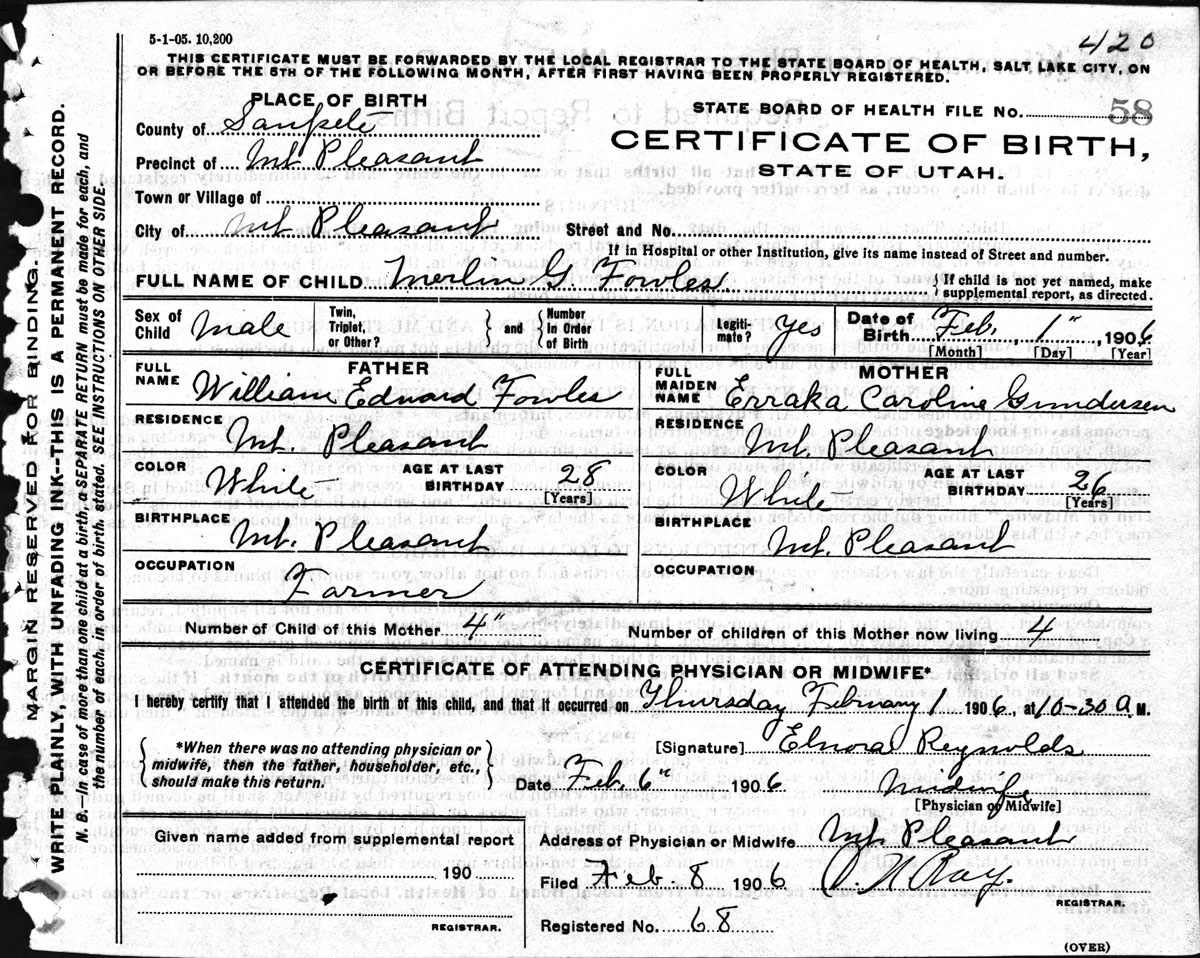 5-1-05. 10,200
420
THIS CERTIFICATE MUST BE FORWARDED BY THE LOCAL REGISTRAR TO THE STATE BOARD OF HEALTH, SALT LAKE CITY, ON
OR BEFORE THE 5TH OF THE FOLLOWING MONTH, AFTER FIRST HAVING BEEN PROPERLY REGISTERED.
PLACE OF BIRTH
STATE BOARD OF HEALTH FILE NO. 58
County of Sanpete
CERTIFICATE OF BIRTH,
Precinct of Mt Pleasant
STATE OF UTAH.
Town or Village of
City of Mt Pleasant Street and No.
If in Hospital or other Institution, give its name instead of Street and number.
FULL NAME OF CHILD Merlin G. Fowles { If child is not yet named, make
supplemental report, as directed.
Sex of Child Male Twin, Triplet, or Other? { and } Number In Order of Birth Legitimate? Yes Date of Birth Feb, 1", 1906
[Month] [Day] [Year]
FATHER
FULL NAME William Edward Fowles
RESIDENCE Mt. Pleasant
COLOR White AGE AT LAST BIRTHDAY 28
[Years]
BIRTHPLACE Mt. Pleasant
OCCUPATION Farmer
MOTHER
FULL MAIDEN NAME Erraka Caroline Gundersen
RESIDENCE Mt. Pleasant
COLOR White AGE AT LAST BIRTHDAY 26
[Years]
BIRTHPLACE Mt. Pleasant
OCCUPATION
Number of Child of this Mother 4" Number of children of this Mother now living 4
CERTIFICATE OF ATTENDING PHYSICIAN OR MIDWIFE*
I hereby certify that I attended the birth of this child, and that it occurred on Thursday February 1 1906, at 10-30 A M.
{ *When there was no attending physician or
midwife, then the father, householder, etc.,
should make this return. }
[Signature] Elnora Reynolds
Date Feb, 6" 1906 Midwife
[Physician or Midwife]
Given name added from supplemental report
190
REGISTRAR.
Address of Physician or Midwife Mt. Pleasant
Filed Feb. 8 1906
REGISTRAR.
Registered No. 68
(OVER)
MARGIN RESERVED FOR BINDING.
WRITE PLAINLY, WITH UNFADING INK--THIS IS A PERMANENT RECORD.
N. B.--In case of more than one child at a birth a SEPARATE RETURN must be made for each, and
the number of each, in order of birth, stated. SEE INSTRUCTIONS ON OTHER SIDE.